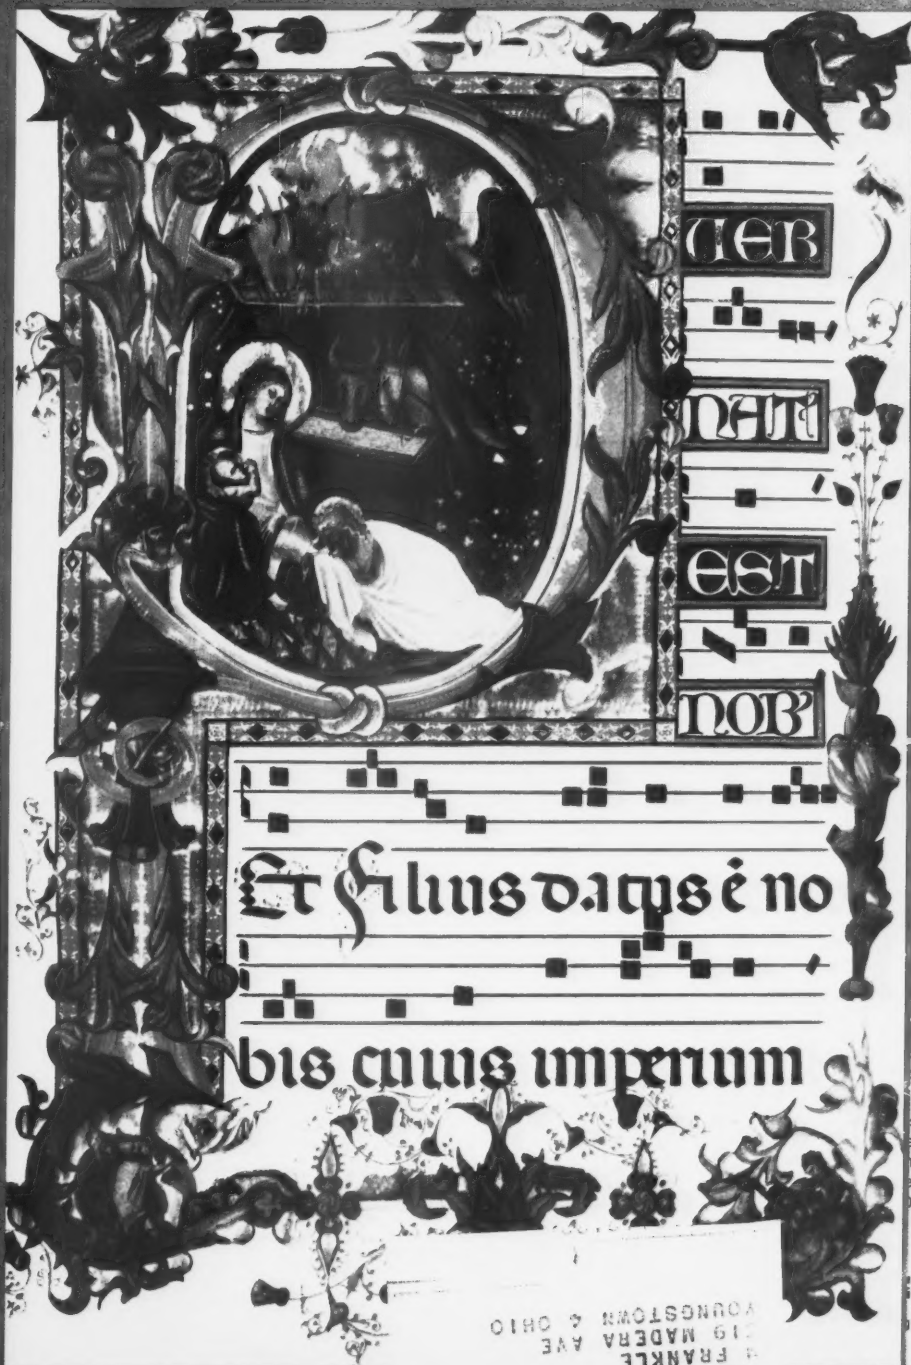 UER
NAT'
EST
NOB'
Et Filius datus ē no
bis cuius imperium
FRANKLE
219 MADERA AVE
YOUNGSTOWN 4 OHIO